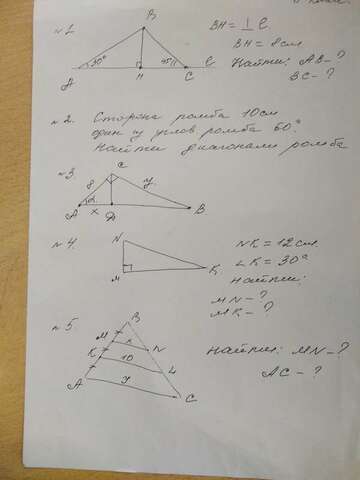 №1.
B
30°
45°
A
H
C
ℓ
BH = ⊥ ℓ.
BH = 8см
Найти: AB - ?
BC - ?
№2. Сторона ромба 10см
один из углов ромба 60°.
Найти диагонали ромба
№3.
C
8
y
A
α
x
D
B
№4.
N
M
K
NK = 12см
∠K = 30°
Найти:
MN - ?
MK - ?
№5
B
M
x
N
K
10
L
A
y
C
Найти: MN - ?
AC - ?